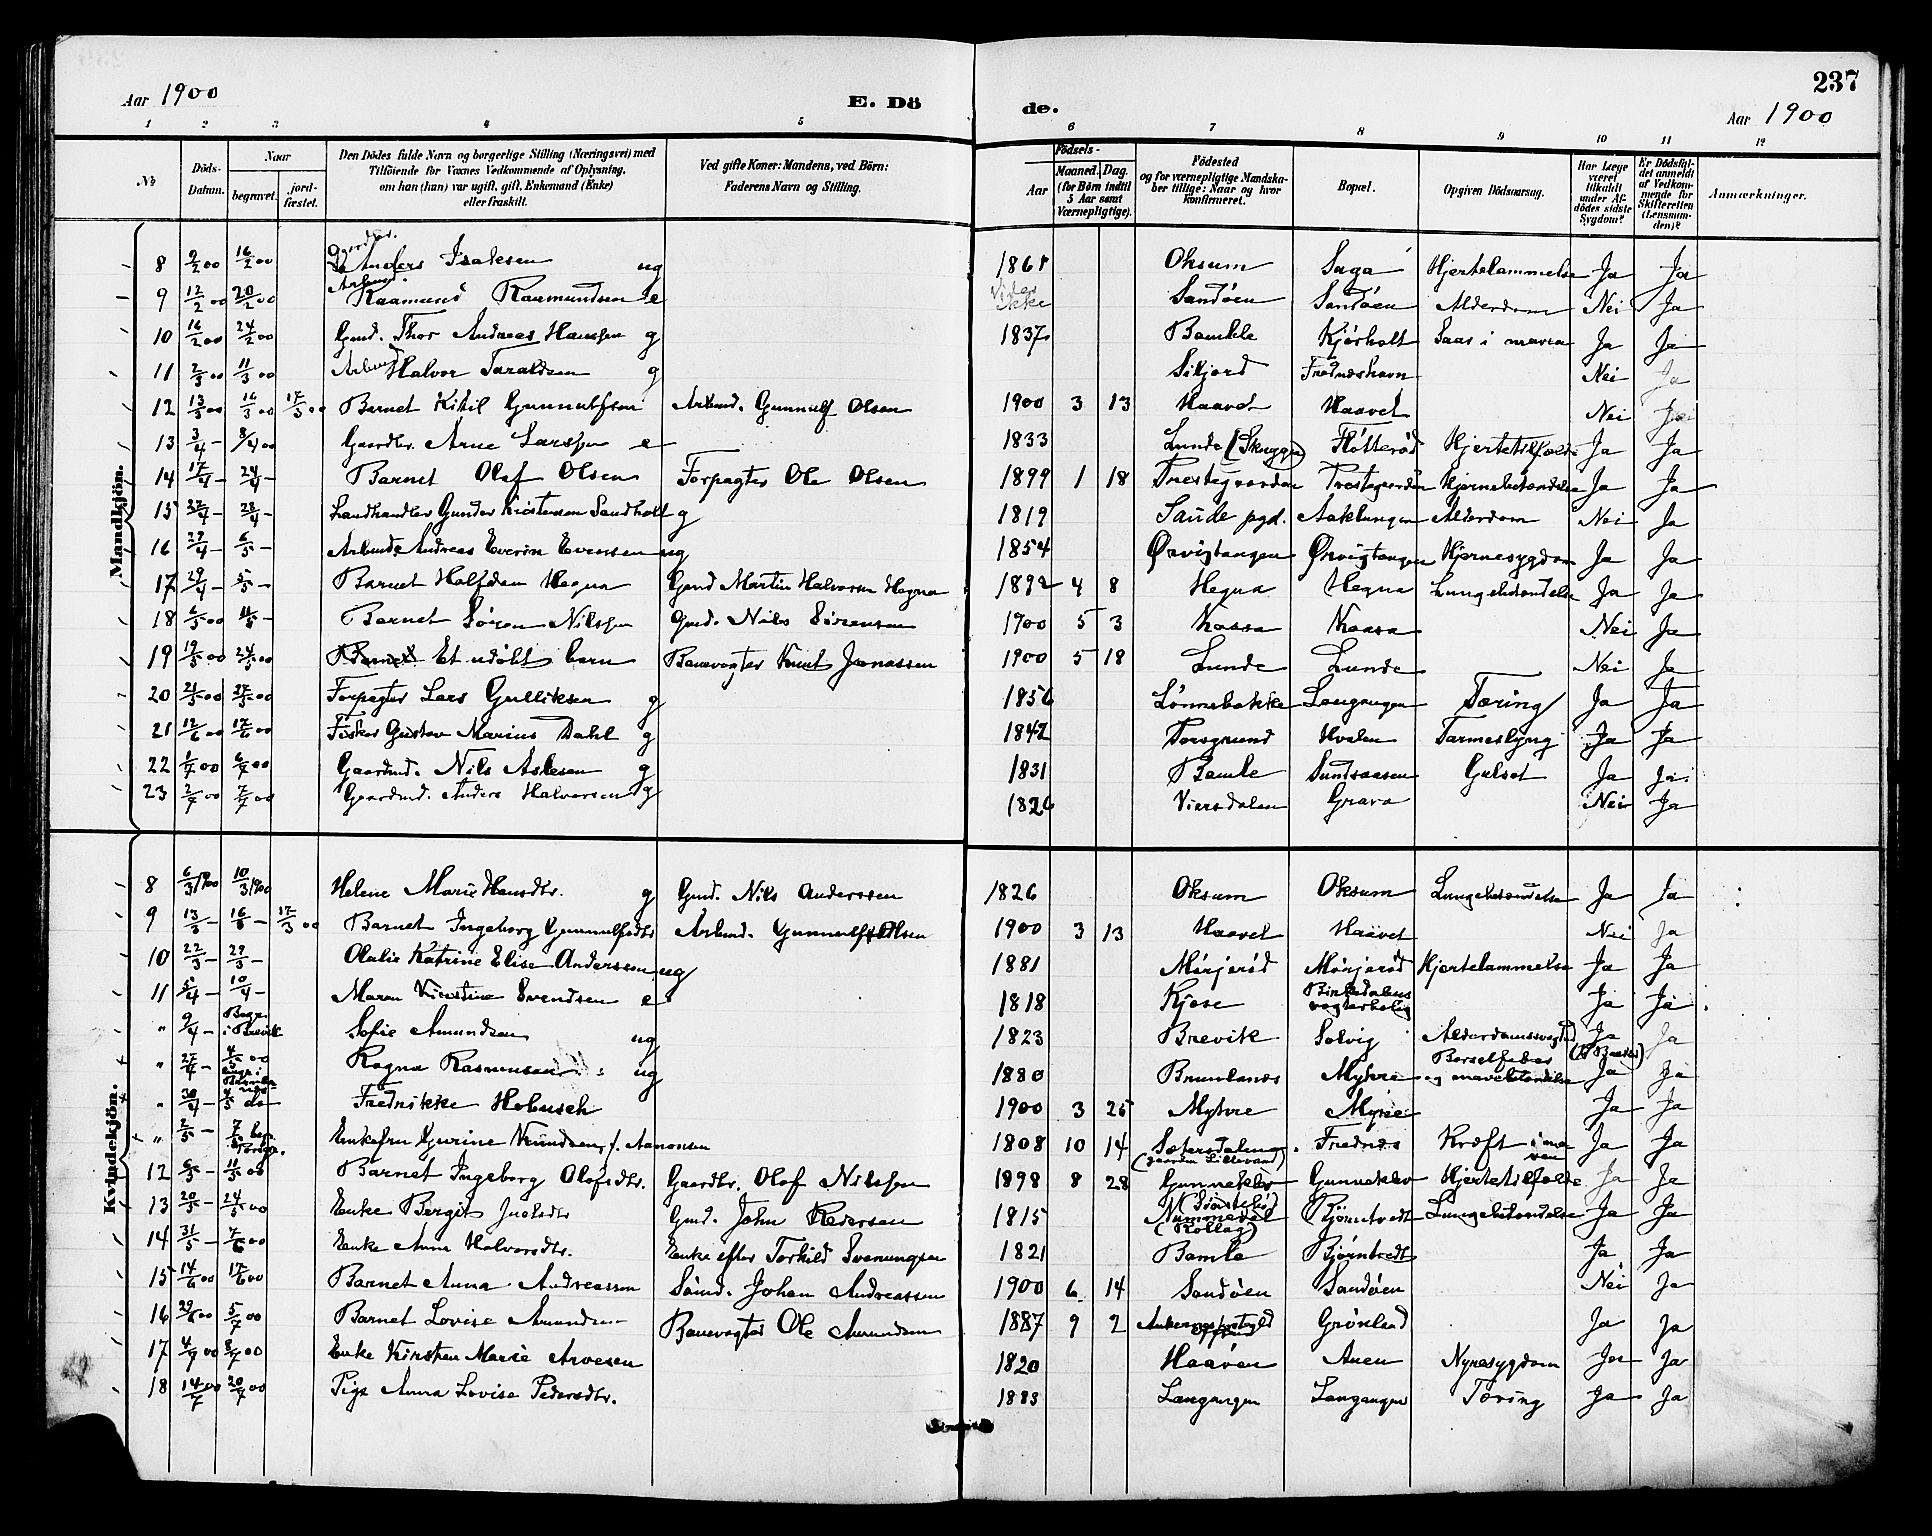 237
Aar 1900
E. Dö
de.
Aar 1900
1 2 3 4 5 6 7 8 9 10 11 12
No
Döds-Datum.
Naar
begravet.
jord-fæstet.
Den Dödes fulde Navn og borgerlige Stilling (Næringsvei) med
Tilföiende for Voxnes Vedkommende af Oplysning,
om han (hun) var ugift, gift, Enkemand (Enke)
eller fraskilt.
Ved gifte Koner: Mandens, ved Börn:
Faderens Navn og Stilling.
Födsels-
Aar
Maaned. Dag.
(for Börn indtil
5 Aar samt
Værnepligtige).
Födested
og for værnepligtige Mandska-
ber tillige: Naar og hvor
konfirmeret.
Bopæl.
Opgiven Dödsaarsag.
Har Læge
været
tilkaldt
under Af-
dödes sidste
Sygdom?
Er Dödsfal-
det anmeldt
af Vedkom-
mende for
Skifteretten
(Lensman-
den)?
Anmærkninger.
Mandkjön.
8 9/2 00 16/2 00 Gaardbr. Anders Isaksen ug 1861 Oksum Saga Hjertelammelse Ja Ja
9 12/2 00 20/2 00 Arbmd. Raamund Raamundsen e Vides ikke Sandøen Sandøen Alderdom Nei Ja
10 16/2 00 24/2 00 Gmd. Thor Andreas Hansen g 1837 Bamble Kjørholt Saar i maven Ja Ja
11 2/3 00 11/3 00 Arbmd Halvor Taraldsen g Siljord Frednæshavn Nei Ja
12 13/3 00 16/3 00 17/3 00 Barnet Kitil Gunnulfsen Arbmd. Gunnulf Olsen 1900 3 13 Haavet Haavet Nei Ja
13 3/4 - 8/4 00 Gaardbr. Arne Larssen e 1833 Lunde (Skugge) Fløtterød Hjertetilfælde Ja Ja
14 17/4 - 24/4 - Barnet Olaf Olsen Forpagter Ole Olsen 1899 1 18 Prestegaarden Prestegaarden Hjernebetændelse Ja Ja
15 22/4 - 28/4 - Landhandler Gunder Kristensen Sandholt g 1819 Saude pgd. Aaklungen Alderdom Nei Ja
16 27/4 - 6/5 - Arbmd. Andreas Evensen ug 1854 Ørvigtangen Ørvigtangen Hjernesygdom Ja Ja
17 29/4 - 5/5 - Barnet Halfdan Hegna Gmd Martin Halvorsen Hegna 1899 4 8 Hegna Hegna Lungebetændelse Ja Ja
18 6/5 00 11/5 - Barnet Søren Nilssen Gmd. Nils Sørensen 1900 5 3 Kaasa Kaasa Nei Ja
19 19/5 00 24/5 00 Et udøbt barn Banevogter Knut Jonassen 1900 5 18 Lunde Lunde Nei Ja
20 21/5 00 27/5 00 Forpagter Lars Gulliksen g 1856 Lønnebakke Langangen Tæring Ja Ja
21 12/6 00 17/6 00 Fisker Gustav Marius Dahl g 1842 Porsgrund Hvalen Tarmeslyng Ja Ja
22 1/7 00 6/7 00 Gaardmd. Nils Aslesen g 1831 Bamle Sundsaasen Gulsot Ja Ja
23 2/7 00 7/7 00 Gaardmd. Anders Halvorsen g 1826 Viersdalen Grava Nei Ja
Kvindekjön.
8 6/3 1900 10/3 1900 Helene Marie Hansdtr. g Gmd. Nils Anderssen 1826 Oksum Oksum Lungebetændelse Ja Ja
9 13/3 - 16/3 - 17/3 00 Barnet Ingeborg Gunnulfsdtr Arbmd. Gunnulf Olsen 1900 3 13 Haavet Haavet Nei Ja
10 22/3 - 29/3 - Olalie Katrine Elise Andersen ug 1881 Mørjerød Mørjerød Hjertelammelse Ja Ja
11 5/4 - 10/4 - Maren Kirstine Svendsen e 1818 Kjose Birkedalens vogterbolig Ja Ja
" 9/4 - Begr. i Brevik Sofie Amundsen ug 1823 Brevik Solvig Alderdomssvaghed Ja Ja
" 27/4 - 4/5 00 Ragna Rasmussen ug 1880 Brunlanæs Myhre Barselfeber og mavebetændelse Ja Ja
" 30/4 - 4/5 do Fredrikke Hobusch 1900 3 25 Myhre Myhre Ja Ja
" 2/5 - 7/5 Enkefru Gurine Knudsen, f. Aamonsen 1808 10 14 Sætersdalen (gaarden Lillevand) Frednæs Kræft i maven Ja Ja
12 6/5 - 11/5 00 Barnet Ingeborg Olofsdtr. Gaardbr. Olof Nilssen 1898 8 28 Gunneklev Gunneklev Hjertetilfælde Ja Ja
13 20/5 - 24/5 00 Enke Bergit Juelsdtr Gmd. John Pedersen 1815 Nummedal (Rollag) Bjørntvedt Lungebetændelse Ja Ja
14 31/5 - 7/6 00 Enke Anne Halvorsdtr. Enke efter Torkild Svenungsen 1821 Bamle Bjørntvedt Ja Ja
15 14/6 00 17/6 00 Barnet Anna Andreassen Sømd. Johan Andreassen 1900 6 14 Sandøen Sandøen Nei Ja
16 29/6 00 5/7 00 Barnet Lovise Amundsen Banevogter Ole Amundsen 1887 9 2 Grønland Ja Ja
17 4/7 00 8/7 00 Enke Kirsten Marie Arvesen 1820 Haaøen Auen Nyresygdom Ja Ja
18 14/7 00 20/7 00 Pige Anna Lovise Pedersdtr. 1883 Langangen Langangen Tæring Ja Ja